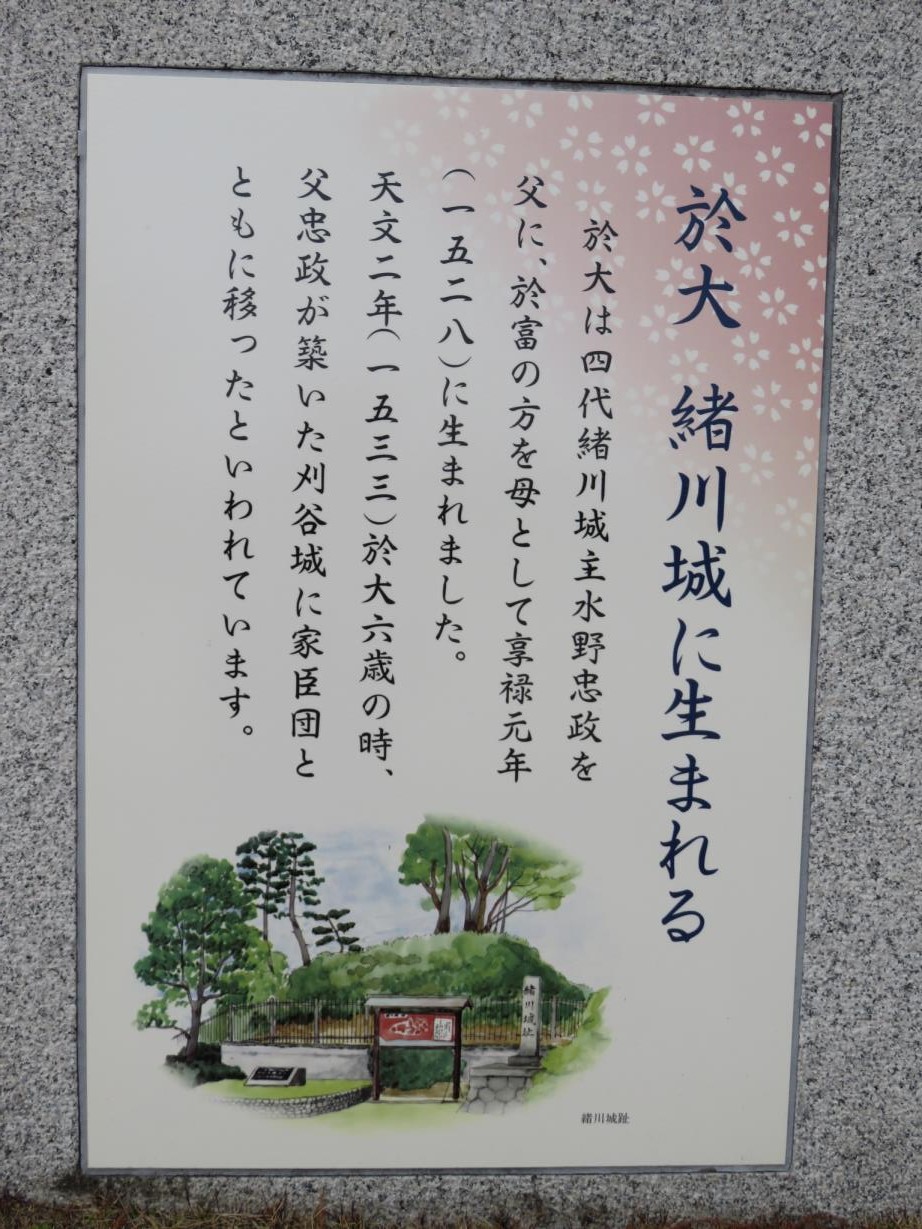 於大 緒川城に生まれる
於大は四代緒川城主水野忠政を
父に、於富の方を母として享禄元年
(一五二八)に生まれました。
天文二年(一五三三)於大六歳の時、
父忠政が築いた刈谷城に家臣団と
ともに移ったといわれています。
緒川城趾
緒川城趾